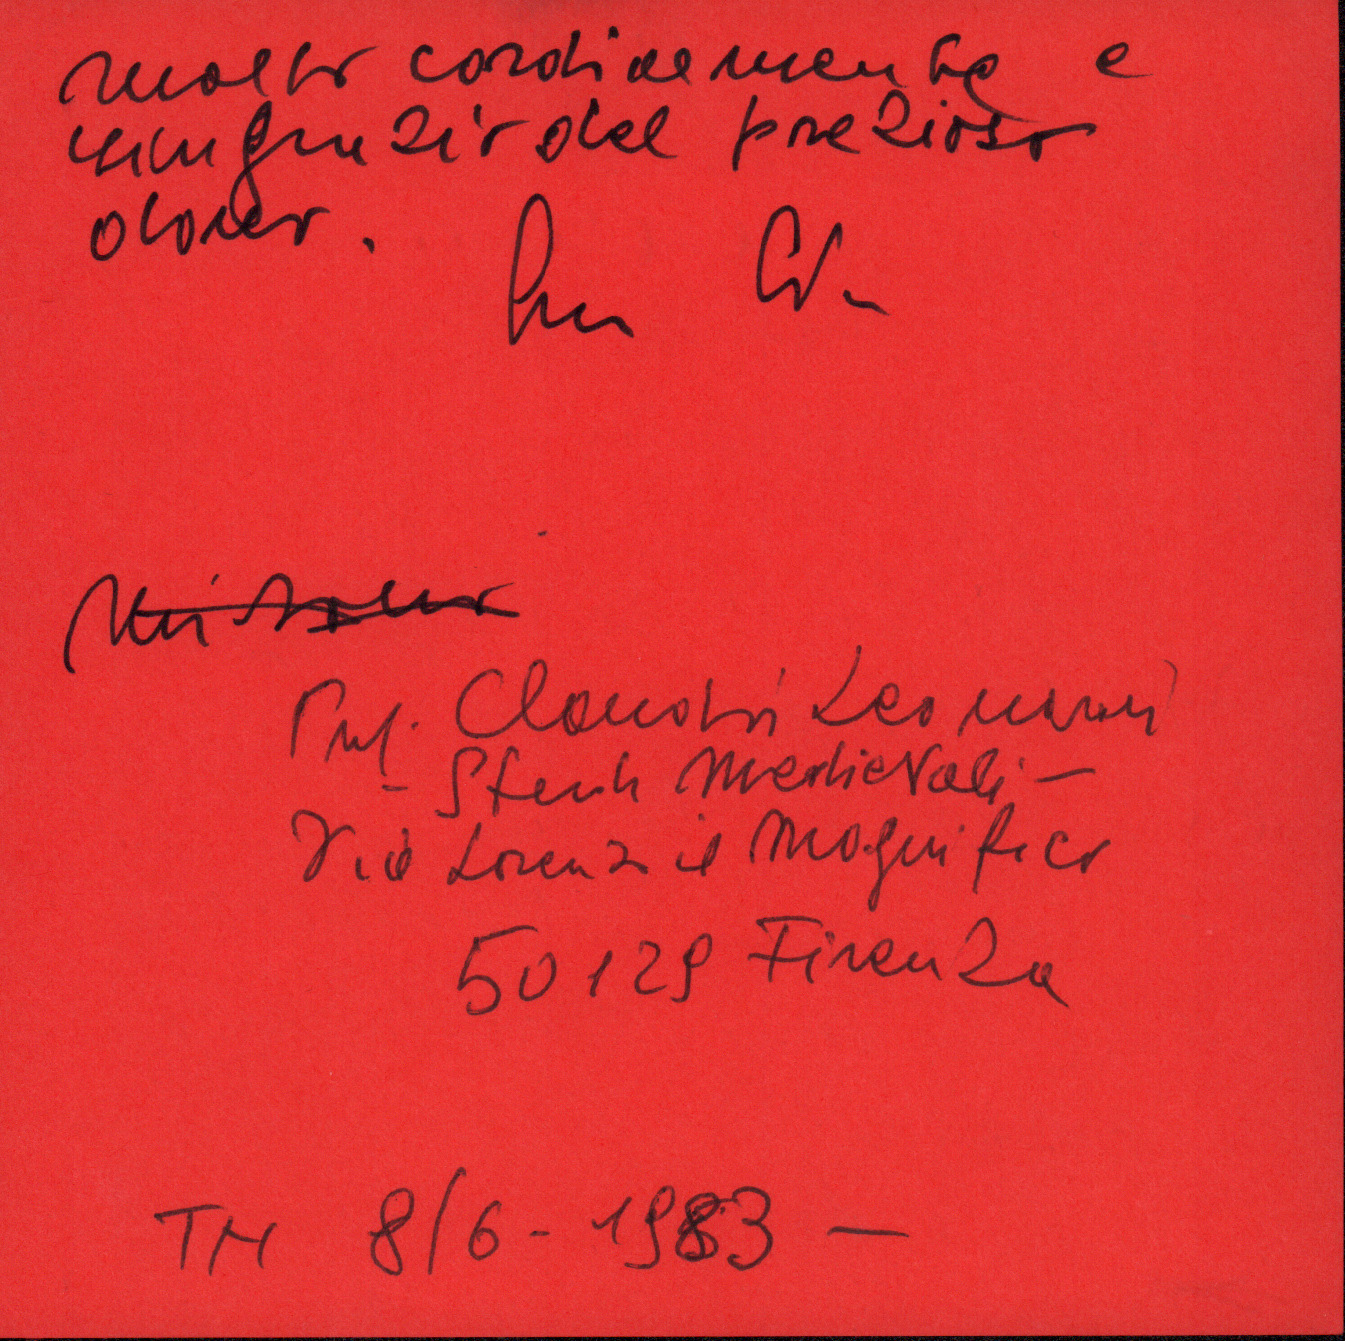 molto cordialmente e
ringrazio del prezioso
dono.
Prof. Claudio Leonardi
- Studi Medievali -
Via Lorenzo il Magnifico
50129 Firenze
TM 8/6 - 1983 -